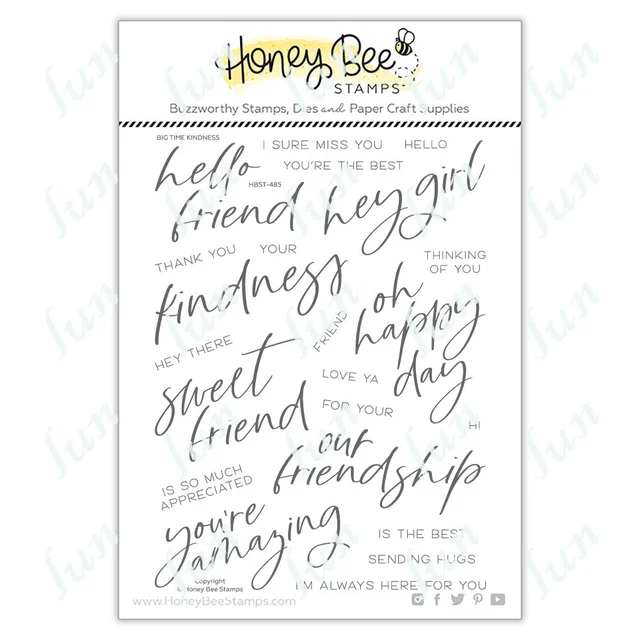 Honey Bee
STAMPS
Buzzworthy Stamps, Dies and Paper Craft Supplies
BIG TIME KINDNESS
I SURE MISS YOU HELLO
YOU'RE THE BEST
hello
HBST-485
friend
hey girl
THANK YOU YOUR
kindness
THINKING
OF YOU
oh
happy
day
FRIEND
HEY THERE
sweet
friend
LOVE YA
FOR YOUR
HI
our
friendship
IS SO MUCH
APPRECIATED
you're
amazing
IS THE BEST
SENDING HUGS
I'M ALWAYS HERE FOR YOU
Copyright
Honey Bee Stamps
www.HoneyBeeStamps.com
fun